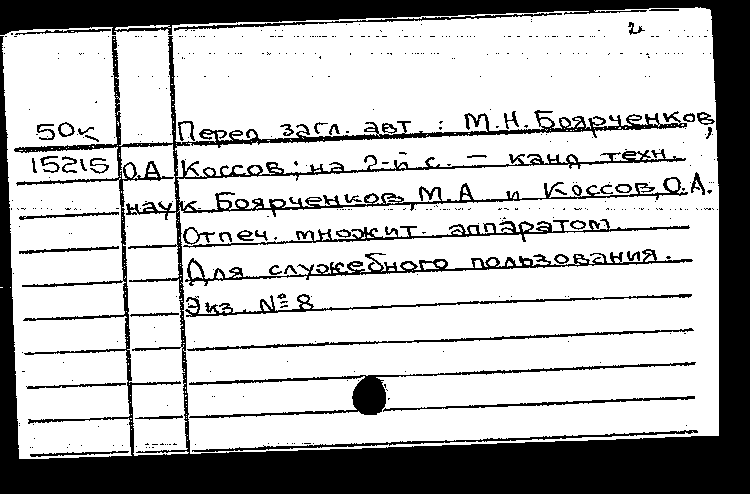 2
50к Перед загл. авт.: М.Н. Боярченков,
15215 О.А Коссов; на 2-й с. — канд техн.
наук Боярченков, М.А и Коссов, О.А.
Отпеч. множит. аппаратом.
Для служебного пользования.
Экз. № 8